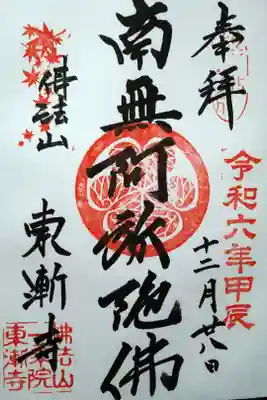 奉拝
令和六年甲辰
十二月廿八日
南無阿弥陀佛
佛法山
東漸寺
佛法山
東漸寺